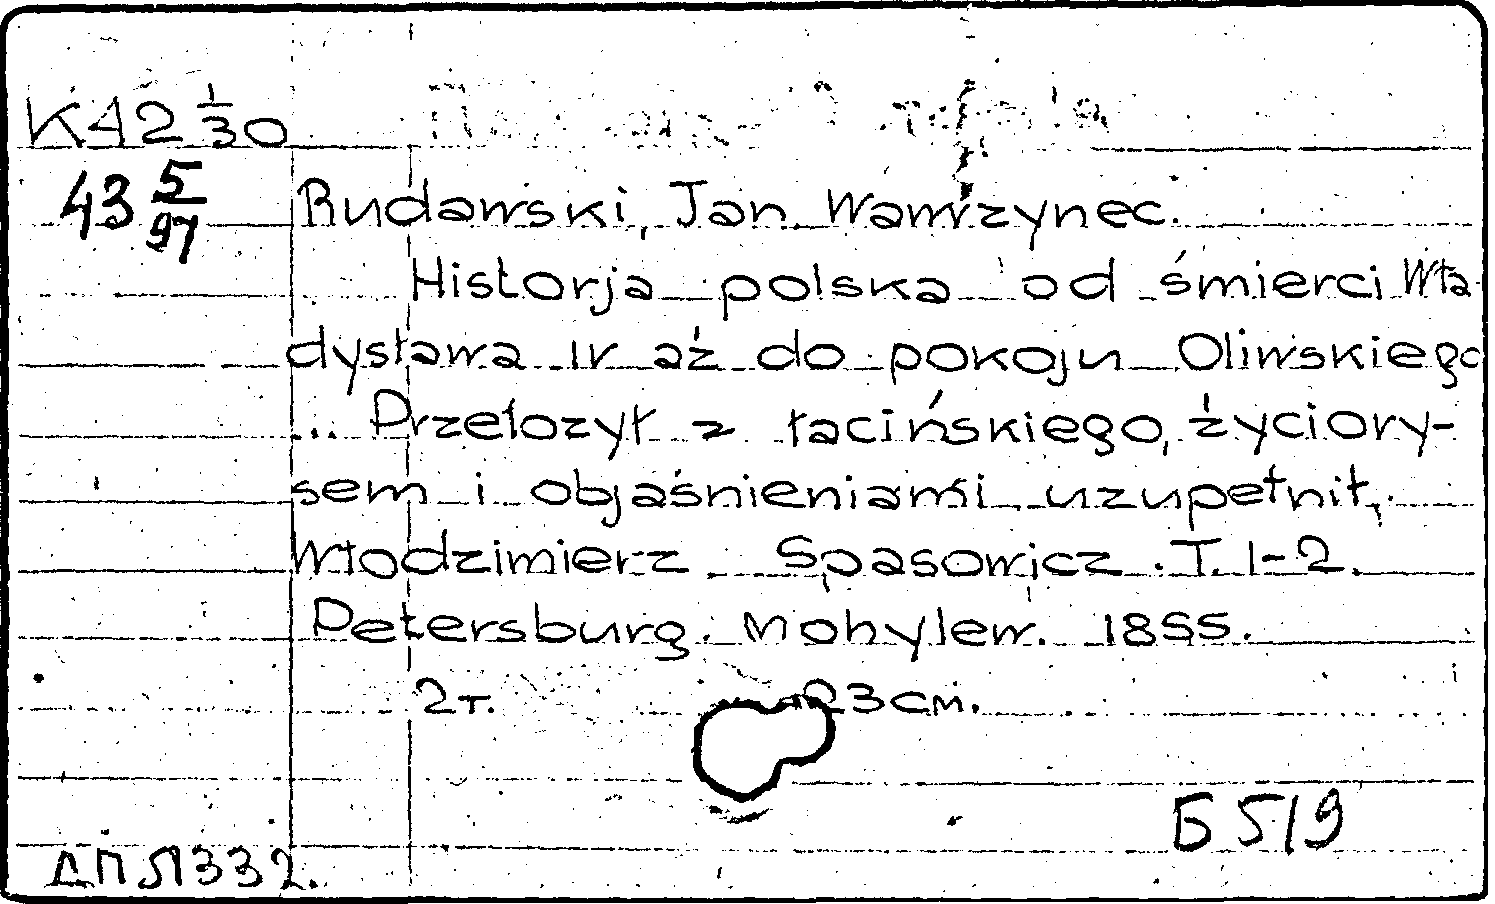 KA2 1/30
43 5/97
Rudawski, Jan Wawrzynec.
Historja polska od śmierci Wła-
dysława IV aż do pokoju Oliwskiego
... Przełozył z łacińskiego, życiory-
sem i objaśnieniami uzupełnił,
Włodzimierz Spasowicz. T. 1-2.
Petersburg. Mohylew. 1855.
2т. 23см.
Б 519